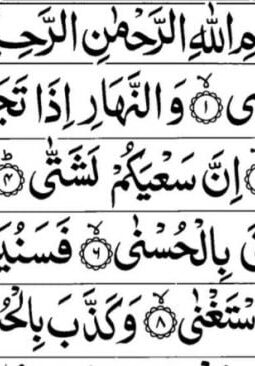 مِ اللّٰهِ الرَّحْمٰنِ الرَّحِ
ى ۙ﴿۱﴾ وَالنَّهَارِ اِذَا تَجَ
اِنَّ سَعْيَكُمْ لَشَتّٰى ؕ﴿۴﴾
بِالْحُسْنٰى ۙ﴿۶﴾ فَسَنُيَ
سْتَغْنٰى ۙ﴿۸﴾ وَكَذَّبَ بِالْحُ